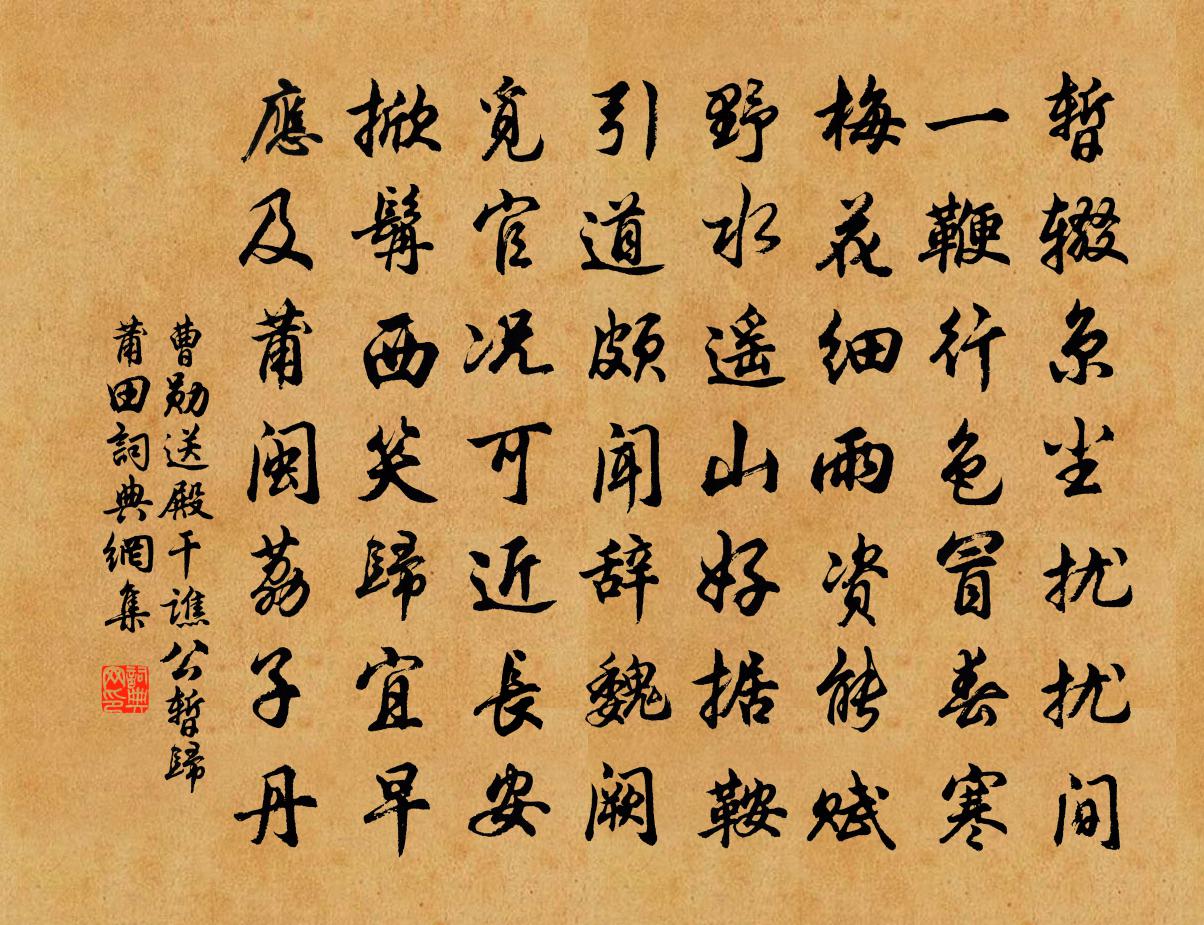 暂辍京尘扰扰间
一鞭行色冒春寒
梅花细雨资能赋
野水遥山好据鞍
引道颇闻辞魏阙
觅官况可近長安
掀髯西笑歸宜早
應及莆闽荔子丹
曹勋送殿干譙公暂歸
莆田詞典網集
詞典网印